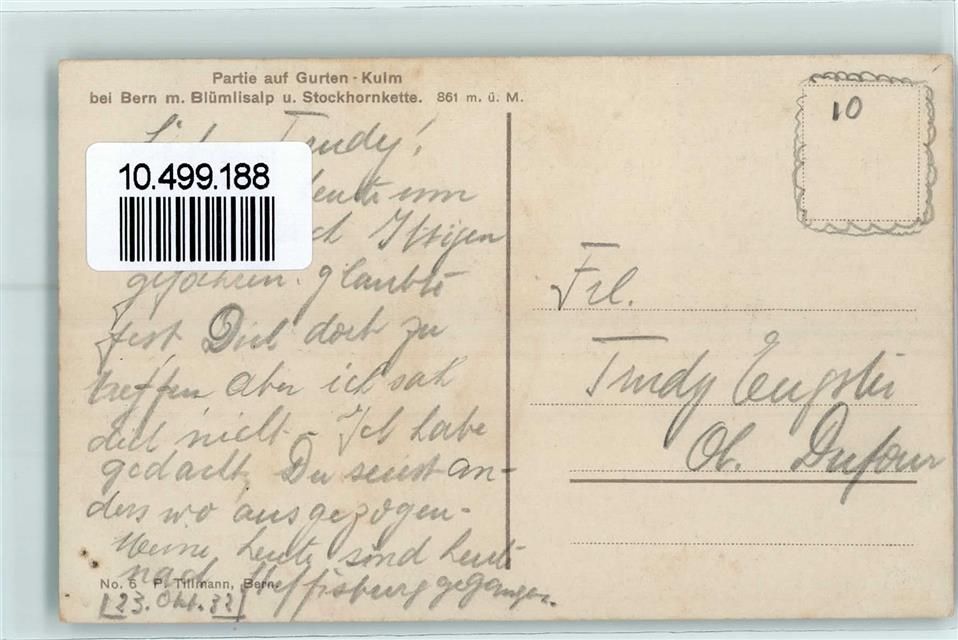 Partie auf Gurten-Kulm
bei Bern m. Blümlisalp u. Stockhornkette. 861 m. ü. M.
10
10.499.188
Trudy!
heute um
Ittigen
gefahren. glaubte
fest Dich dort zu
treffen aber ich sah
dich nicht. Ich habe
gedacht, Du seiest an-
ders wo ausgezogen.
Meine heute sind heute
nach Steffisburg gegangen.
No. 6 P. Tillmann, Bern.
23. Okt. 32
Frl.
Trudy Eugster
Ob. Dufour